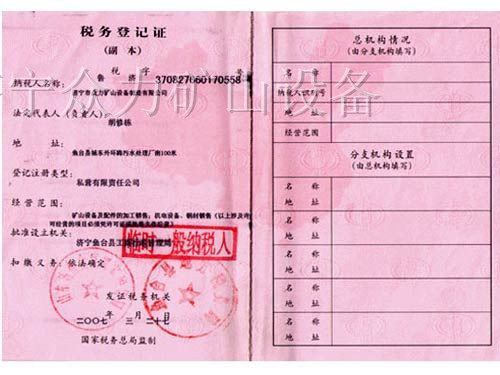 税务登记证
(副 本)
税 字
鲁 济 370827660170558 号
纳税人名称:
济宁市众力矿山设备制造有限公司
法定代表人(负责人)
胡修栋
地 址:
鱼台县城东外环路污水处理厂南100米
登记注册类型:
私营有限责任公司
经营范围:
矿山设备及配件的加工销售;机电设备、钢材销售(以上涉及许
可经营的项目必须凭许可证
批准设立机关:
济宁鱼台县工商行政管理局
临时一般纳税人
扣缴义务:依法确定
发证税务机关
二〇〇七 年 三 月 二十七 日
国家税务总局监制
总机构情况
(由分支机构填写)
名 称
纳税人识别号
地 址
经营范围
分支机构设置
(由总机构填写)
名 称
地 址
名 称
地 址
名 称
地 址
名 称
地 址
名 称
地 址
济宁众力矿山设备